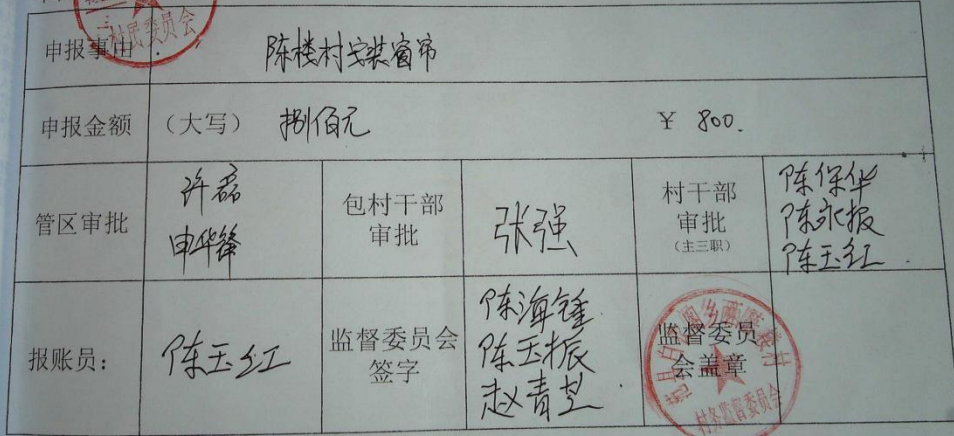 村民委员会
申报事由
陈楼村安装窗帘
申报金额 （大写） 捌佰元 ￥ 800.
管区审批
许磊
申华锋
包村干部
审批
张强
村干部
审批
（主三职）
陈保华
陈永报
陈玉红
报账员：
陈玉红
监督委员会
签字
陈海锺
陈玉振
赵青芝
监督委员
会盖章
村务监督委员会